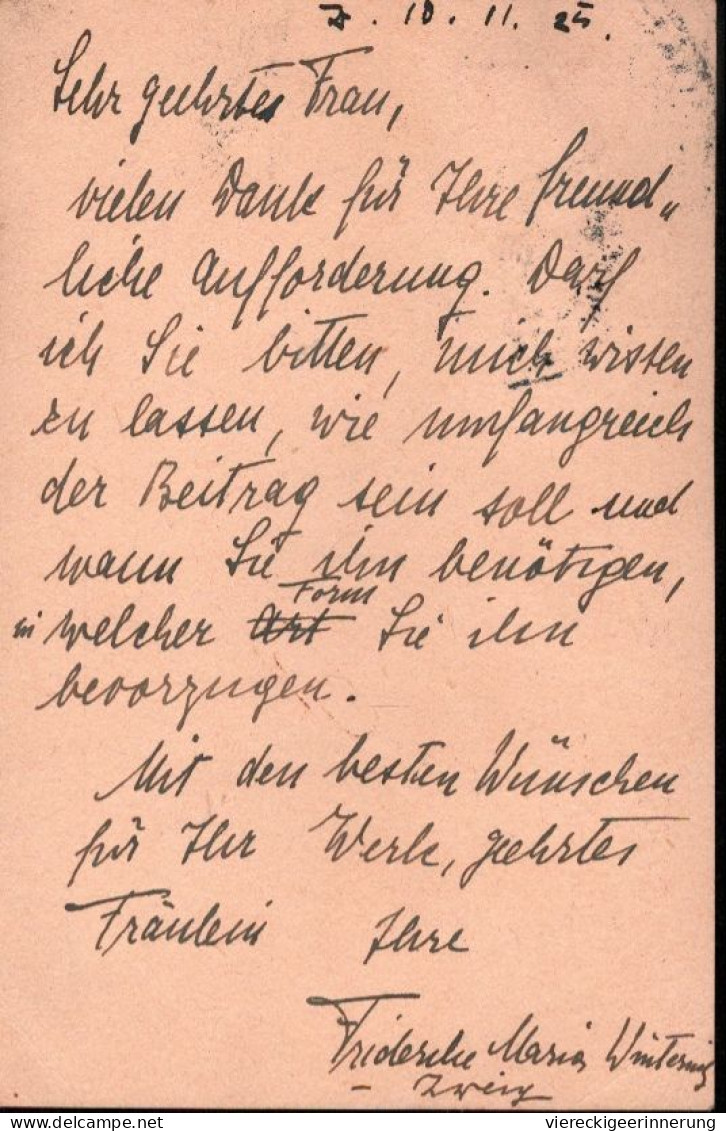 Z. 10. 11. 25.
Sehr geehrtes Frau,
vielen Dank für Ihre freund„
liche Aufforderung. Darf
ich Sie bitten, mich wissen
zu lassen, wie umfangreich
der Beitrag sein soll und
wann Sie ihn benötigen,
Form
in welcher Art Sie ihn
bevorzugen.
Mit den besten Wünschen
für Ihr Werk, geehrtes
Fräulein Ihre
Friderike Maria Winternitz
- Zweig
delcampe.net
viereckigeerinnerung